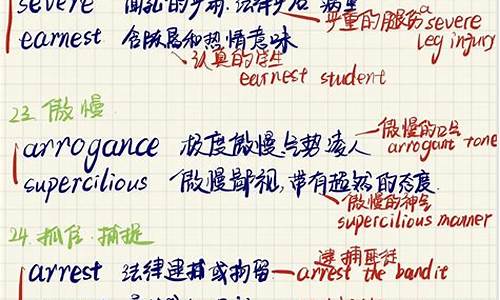 severe
严重的腿伤 a severe leg injury
earnest 含既高和热情意味
认真的学生
earnest student
23. 傲慢
arrogance 极度傲慢.气势凌人
傲慢的口气
arrogant tone
supercilious 傲慢鄙视,带有超然的态度
傲慢的神气
supercilious manner
24. 抓住.捕捉
arrest 法律逮捕或拘留
逮捕匪徒
arrest the bandit